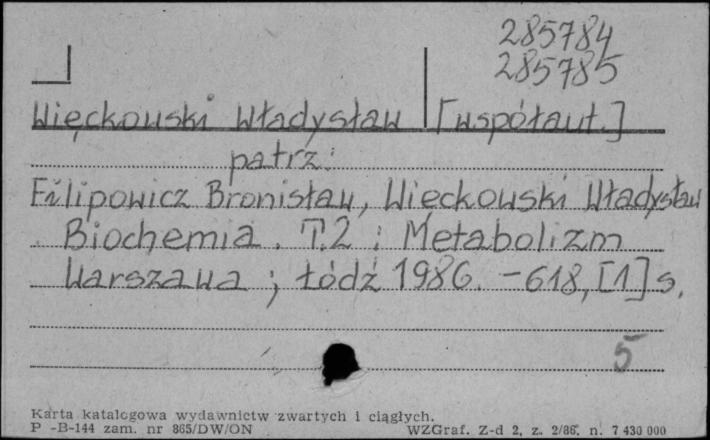 285784
285785
Więckowski Władysław [współaut.]
patrz:
Filipowicz Bronisław, Więckowski Władysław
Biochemia. T.2 : Metabolizm
Warszawa ; Łódź 1986. - 618, [1] s.
5
Karta katalogowa wydawnictw zwartych i ciągłych.
P -B-144 zam. nr 865/DW/ON WZGraf. Z-d 2, z. 2/86, n. 7 430 000